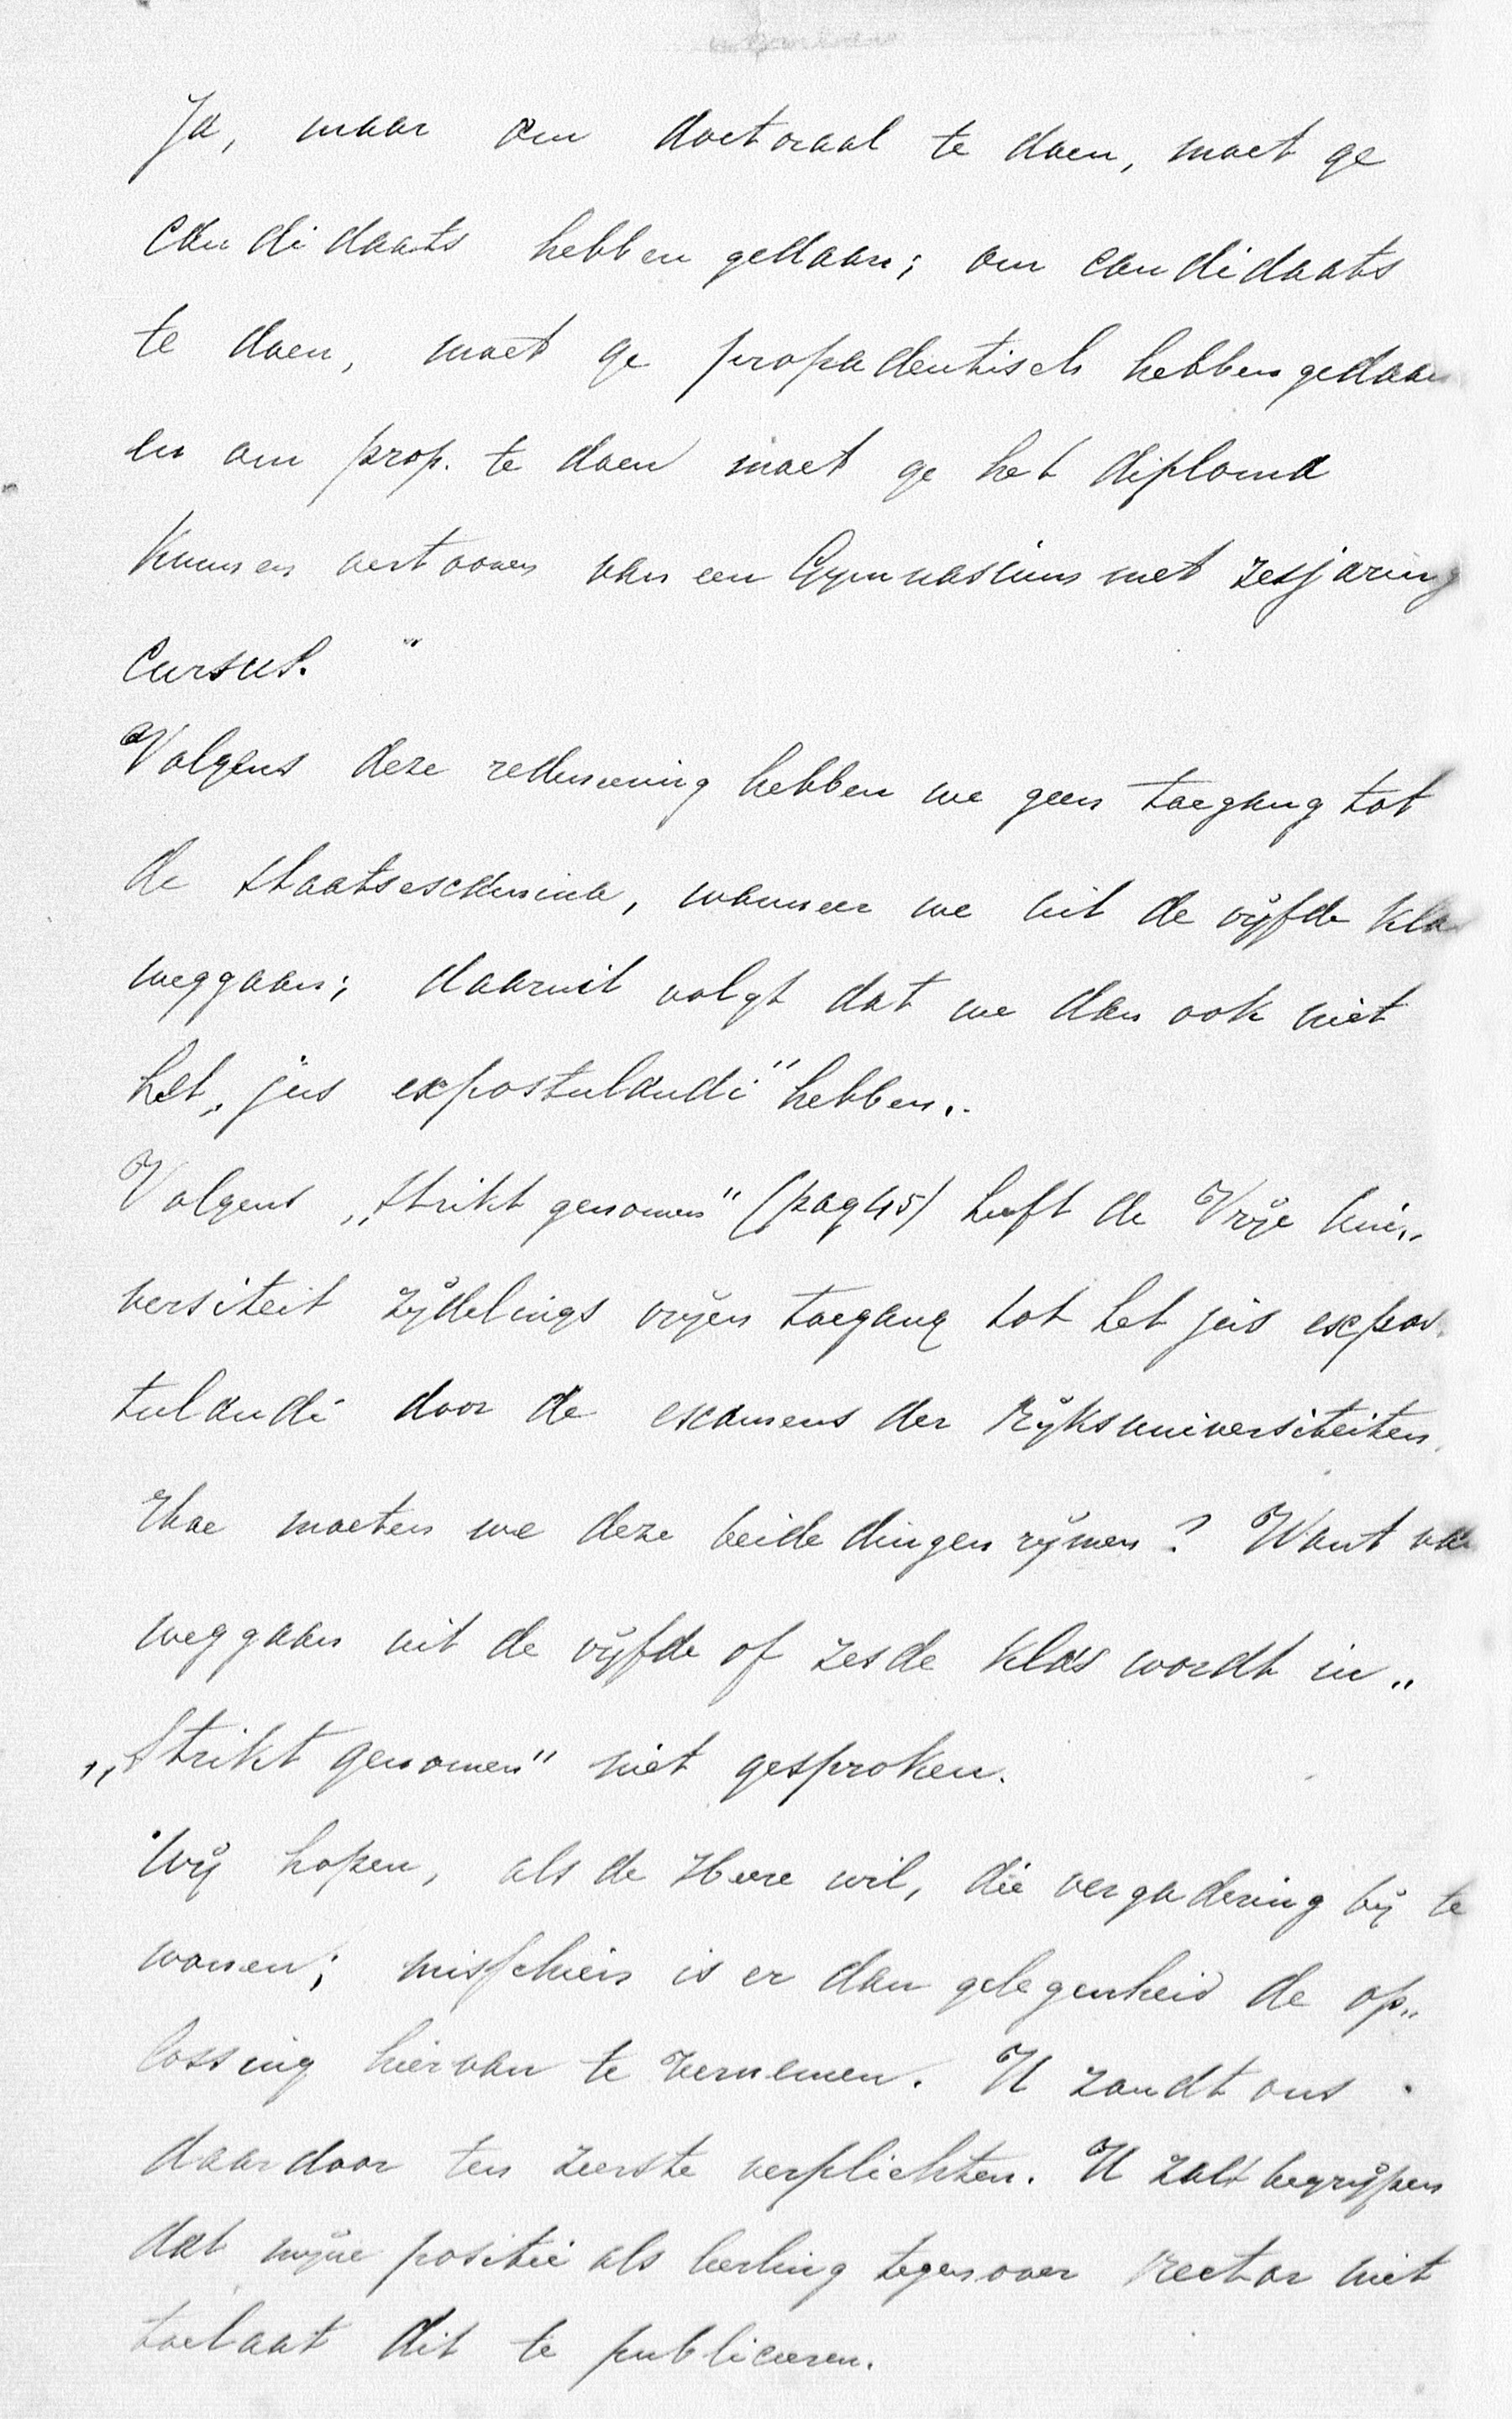 Ja, maar om doctoraal te doen, moet ge
candidaats hebben gedaan; om candidaats
te doen, moet ge propadeutisch hebben gedaan
en om prop. te doen moet ge het diploma
kunnen vertoonen van een Gymnasium met zesjaring
cursus. "
Volgens deze redeneering hebben we geen toegang tot
de staatsexamina, wanneer we uit de vijfde klas
weggaan; daaruit volgt dat we dan ook niet
het „jus expostulandi" hebben.
Volgens „Strikt genomen" (pag 45) heeft de Vrije Uni„
versiteit zijdelings vrijen toegang tot het jus expos„
tulandi door de examens der Rijksuniversiteiten.
Hoe moeten we deze beide dingen rijmen? Want van
weggaan uit de vijfde of zesde klas wordt in „
„Strikt genomen" niet gesproken.
Wij hopen, als de Heere wil, die vergadering bij te
wonen; misschien is er dan gelegenheid de op„
lossing hiervan te vernemen. U zoudt ons
daardoor ten zeerste verplichten. U zult begrijpen
dat mijne positie als leerling tegenover Rector niet
toelaat dit te publiceeren.